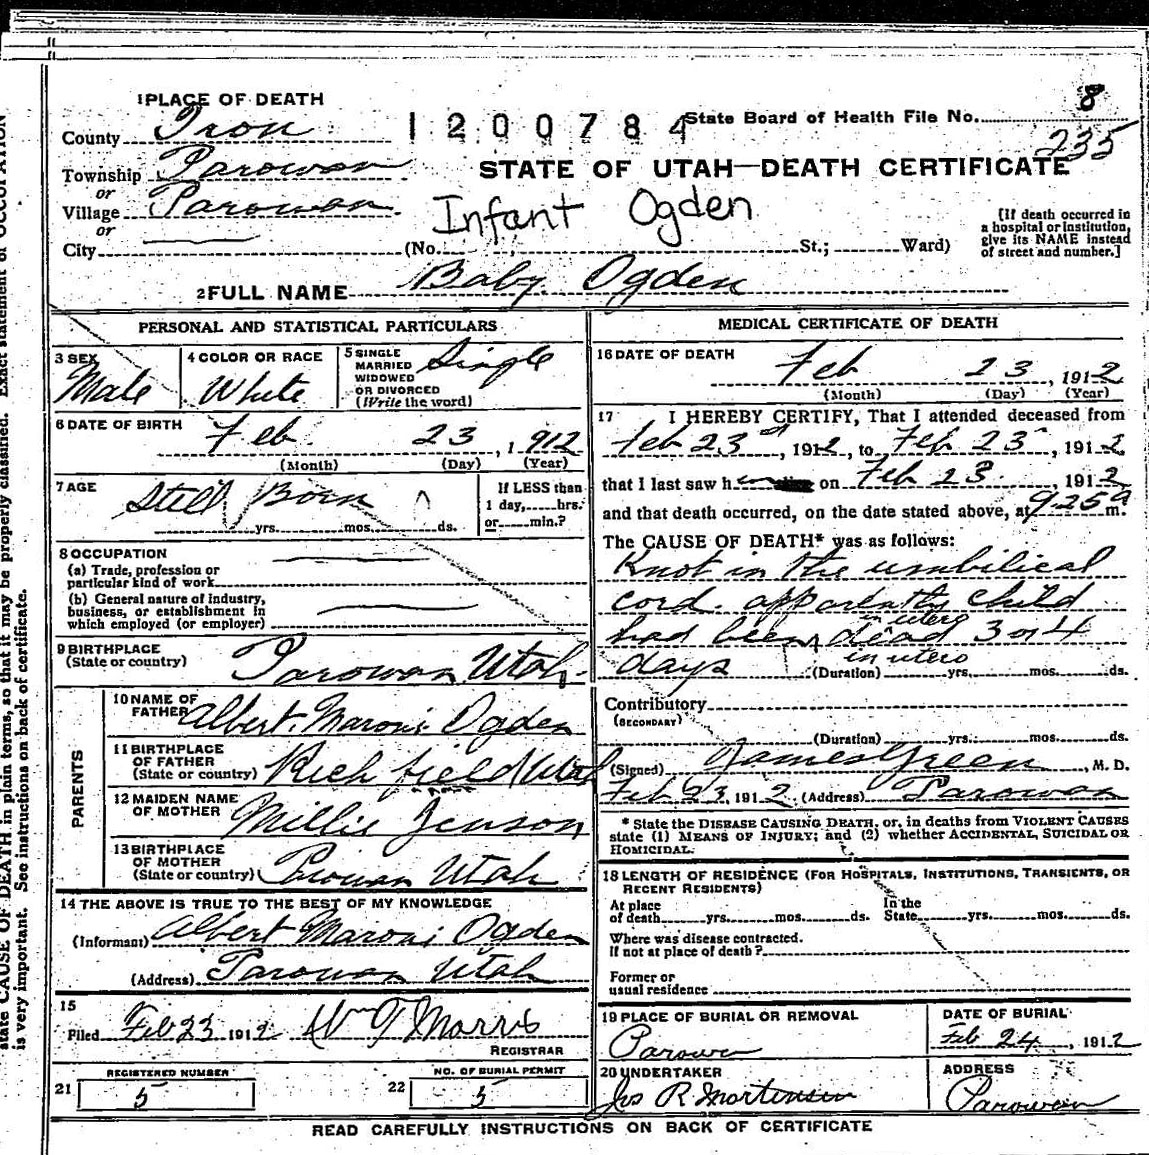 1 PLACE OF DEATH
County Iron
1200784
State Board of Health File No. 8
235
Township Parowan
or
Village Parowan
or
City
STATE OF UTAH—DEATH CERTIFICATE
Infant Ogden
(No. St.; Ward)
[If death occurred in
a hospital or institution,
give its NAME instead
of street and number.]
2 FULL NAME Baby Ogden
PERSONAL AND STATISTICAL PARTICULARS
3 SEX
Male
4 COLOR OR RACE
White
5 SINGLE
MARRIED
WIDOWED
OR DIVORCED
(Write the word)
Single
6 DATE OF BIRTH
Feb. 23, 1912
(Month) (Day) (Year)
7 AGE
Still Born
yrs. mos. ds.
If LESS than
1 day, hrs.
or min.?
8 OCCUPATION
(a) Trade, profession or
particular kind of work
(b) General nature of industry,
business, or establishment in
which employed (or employer)
9 BIRTHPLACE
(State or country)
Parowan Utah.
PARENTS
10 NAME OF
FATHER
Albert. Maroni Ogden
11 BIRTHPLACE
OF FATHER
(State or country)
Richfield Utah
12 MAIDEN NAME
OF MOTHER
Millie Jenson
13 BIRTHPLACE
OF MOTHER
(State or country)
Parowan Utah
14 THE ABOVE IS TRUE TO THE BEST OF MY KNOWLEDGE
(Informant) Albert Maroni Ogden
(Address) Parowan Utah
15
Filed Feb 23 1912 Wm T Morris
REGISTRAR
21 REGISTERED NUMBER
5
22 NO. OF BURIAL PERMIT
5
MEDICAL CERTIFICATE OF DEATH
16 DATE OF DEATH
Feb 23, 1912
(Month) (Day) (Year)
17 I HEREBY CERTIFY, That I attended deceased from
Feb 23d, 1912, to Feb 23, 1912
that I last saw h on Feb 23, 1912
and that death occurred, on the date stated above, at 925a m.
The CAUSE OF DEATH* was as follows:
Knot in the umbilical
cord. apparently child
in utero
had been dead 3 or 4
days in utero
(Duration) yrs. mos. ds.
Contributory
(SECONDARY)
(Duration) yrs. mos. ds.
(Signed) James Green, M. D.
Feb 23, 1912 (Address) Parowan
* State the DISEASE CAUSING DEATH, or, in deaths from VIOLENT CAUSES
state (1) MEANS OF INJURY; and (2) whether ACCIDENTAL, SUICIDAL OR
HOMICIDAL.
18 LENGTH OF RESIDENCE (FOR HOSPITALS, INSTITUTIONS, TRANSIENTS, OR
RECENT RESIDENTS)
At place
of death yrs. mos. ds.
In the
State yrs. mos. ds.
Where was disease contracted.
If not at place of death?
Former or
usual residence
19 PLACE OF BURIAL OR REMOVAL
Parowan
DATE OF BURIAL
Feb 24, 1912
20 UNDERTAKER
Jos R. Mortensen
ADDRESS
Parowan
READ CAREFULLY INSTRUCTIONS ON BACK OF CERTIFICATE
state CAUSE OF DEATH in plain terms, so that it may be properly classified. Exact statement of OCCUPATION
is very important. See instructions on back of certificate.